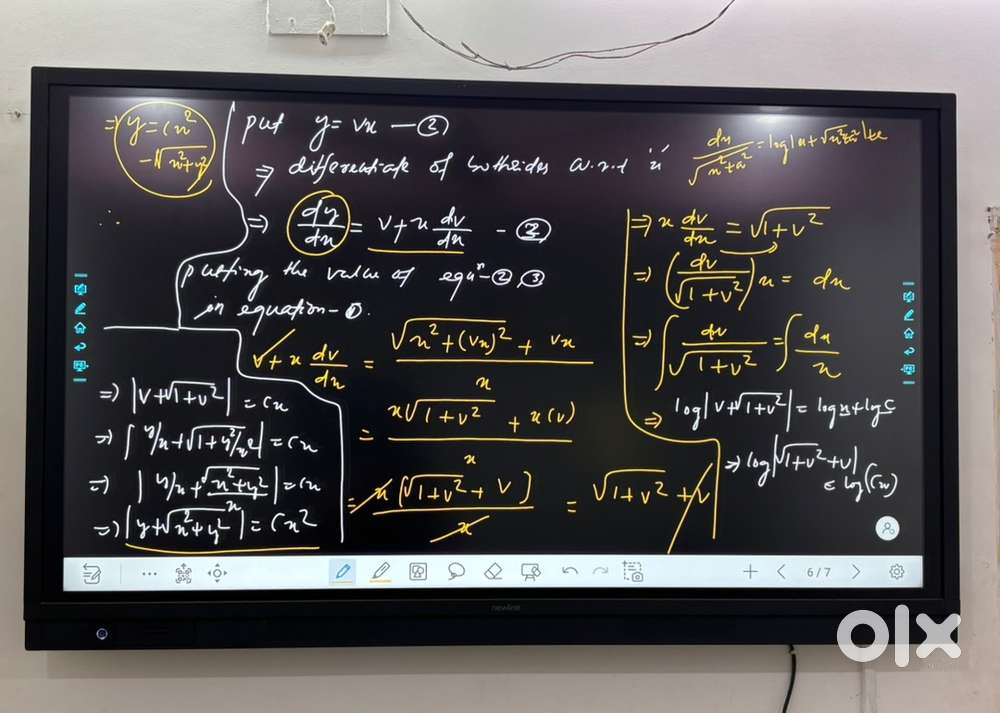 ⇒ y = cx²
- √x²+y²
∴
put y = vx — ②
⇒ differentiate of bothsides w.r.t 'x'
dx/√x²+a² = log|x+√x²+a²|+c
⇒ dy/dx = v + x dv/dx — ③
putting the value of equⁿ - ②, ③
in equation - ①.
v + x dv/dx = √x²+(vx)² + vx / x
= x√1+v² + x(v) / x
= x(√1+v² + v) / x = √1+v² + v
⇒ x dv/dx = √1+v²
⇒ (dv/√1+v²) x = dx
⇒ ∫ dv/√1+v² = ∫ dx/x
⇒ log|v+√1+v²| = logx+logc
⇒ log|√1+v²+v|
= log(cx)
⇒ |v+√1+v²| = cx
⇒ |y/x+√1+y²/x²| = cx
⇒ |y/x+√x²+y²/x| = cx
⇒ |y+√x²+y²| = cx²
6/7
newline
olx